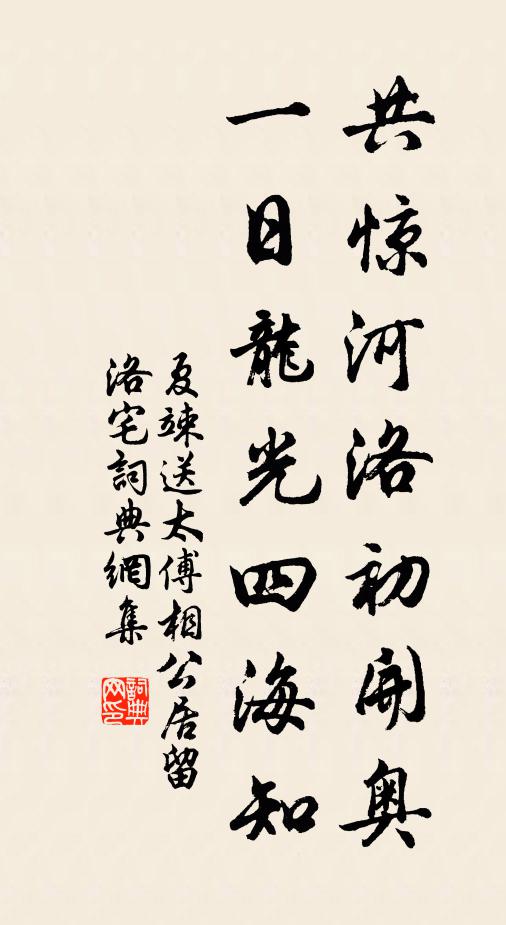 共惊河洛初開奥
一日龍光四海知
夏竦送太傅相公居留
洛宅詞典網集
詞典網印